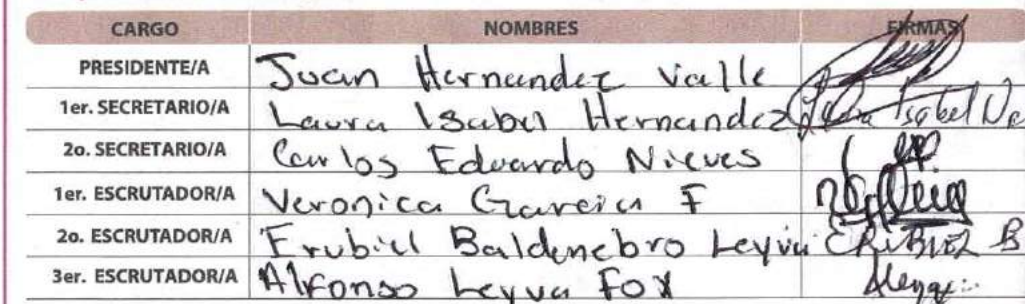 CARGO NOMBRES FIRMAS
PRESIDENTE/A Juan Hernandez Valle
1er. SECRETARIO/A Laura Isabel Hernandez Isabel
2o. SECRETARIO/A Carlos Eduardo Nieves
1er. ESCRUTADOR/A Veronica Garcia F
2o. ESCRUTADOR/A Erubiel Baldenebro Leyva ERUBIEL B
3er. ESCRUTADOR/A Alfonso Leyva Fox